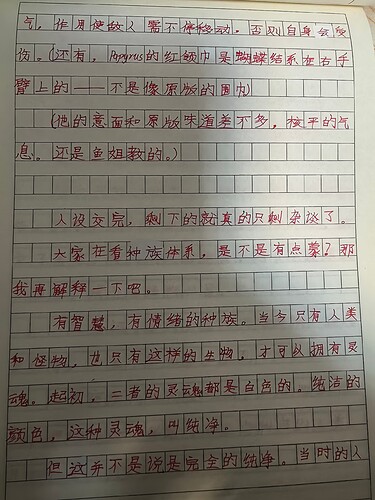 气，作用使敌人需不停移动，否则自身会受
伤。（还有，Papyrus的红领巾是蝴蝶结系在右手
臂上的——不是像原版的围巾）
（他的意面和原版味道差不多，核平的气
息。还是鱼姐教的。）
人设交完，剩下的就真的只剩杂谈了。
大家在看种族体系，是不是有点蒙？那
我再解释一下吧。
有智慧，有情绪的种族。当今只有人类
和怪物，也只有这样的生物，才可以拥有灵
魂。起初，二者的灵魂都是白色的。纯洁的
颜色，这种灵魂，叫纯净。
但这并不是说是完全的纯净。当时的人